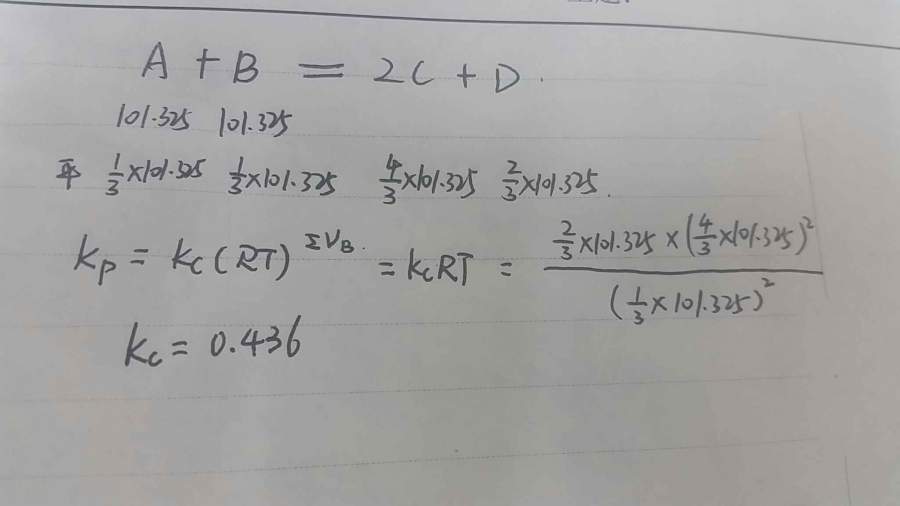 A + B = 2C + D.
101.325 101.325
平 1/3×101.325 1/3×101.325 4/3×101.325 2/3×101.325.
kp = kc(RT)^ΣνB. = kcRT = (2/3×101.325×(4/3×101.325)²)/(1/3×101.325)²
kc = 0.436